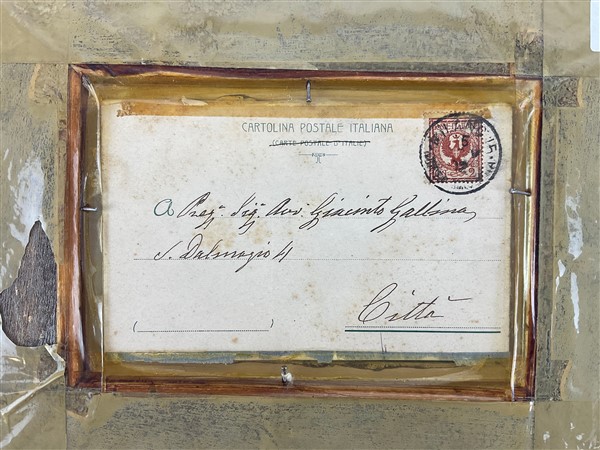 CARTOLINA POSTALE ITALIANA
(CARTE POSTALE D'ITALIE)
A Preg. Sig. Avv. Giacinto Gallina
S. Dalmazio 4
Città
( )